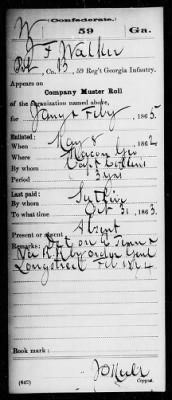 Confederate.
59 Ga.
J F Walker
Pvt, Co. B, 59 Reg't Georgia Infantry.
Appears on
Company Muster Roll
of the organization named above,
for Jany & Feby, 1865.
Enlisted:
When May 8, 1862
Where Macon Geo
By whom Capt Collins
Period 3 yrs
Last paid:
By whom
To what time Oct 31, 1863.
Present or absent Absent
Remarks: Det on
by order Genl
Longstreet Feb
Book mark:
(642) Copyist.